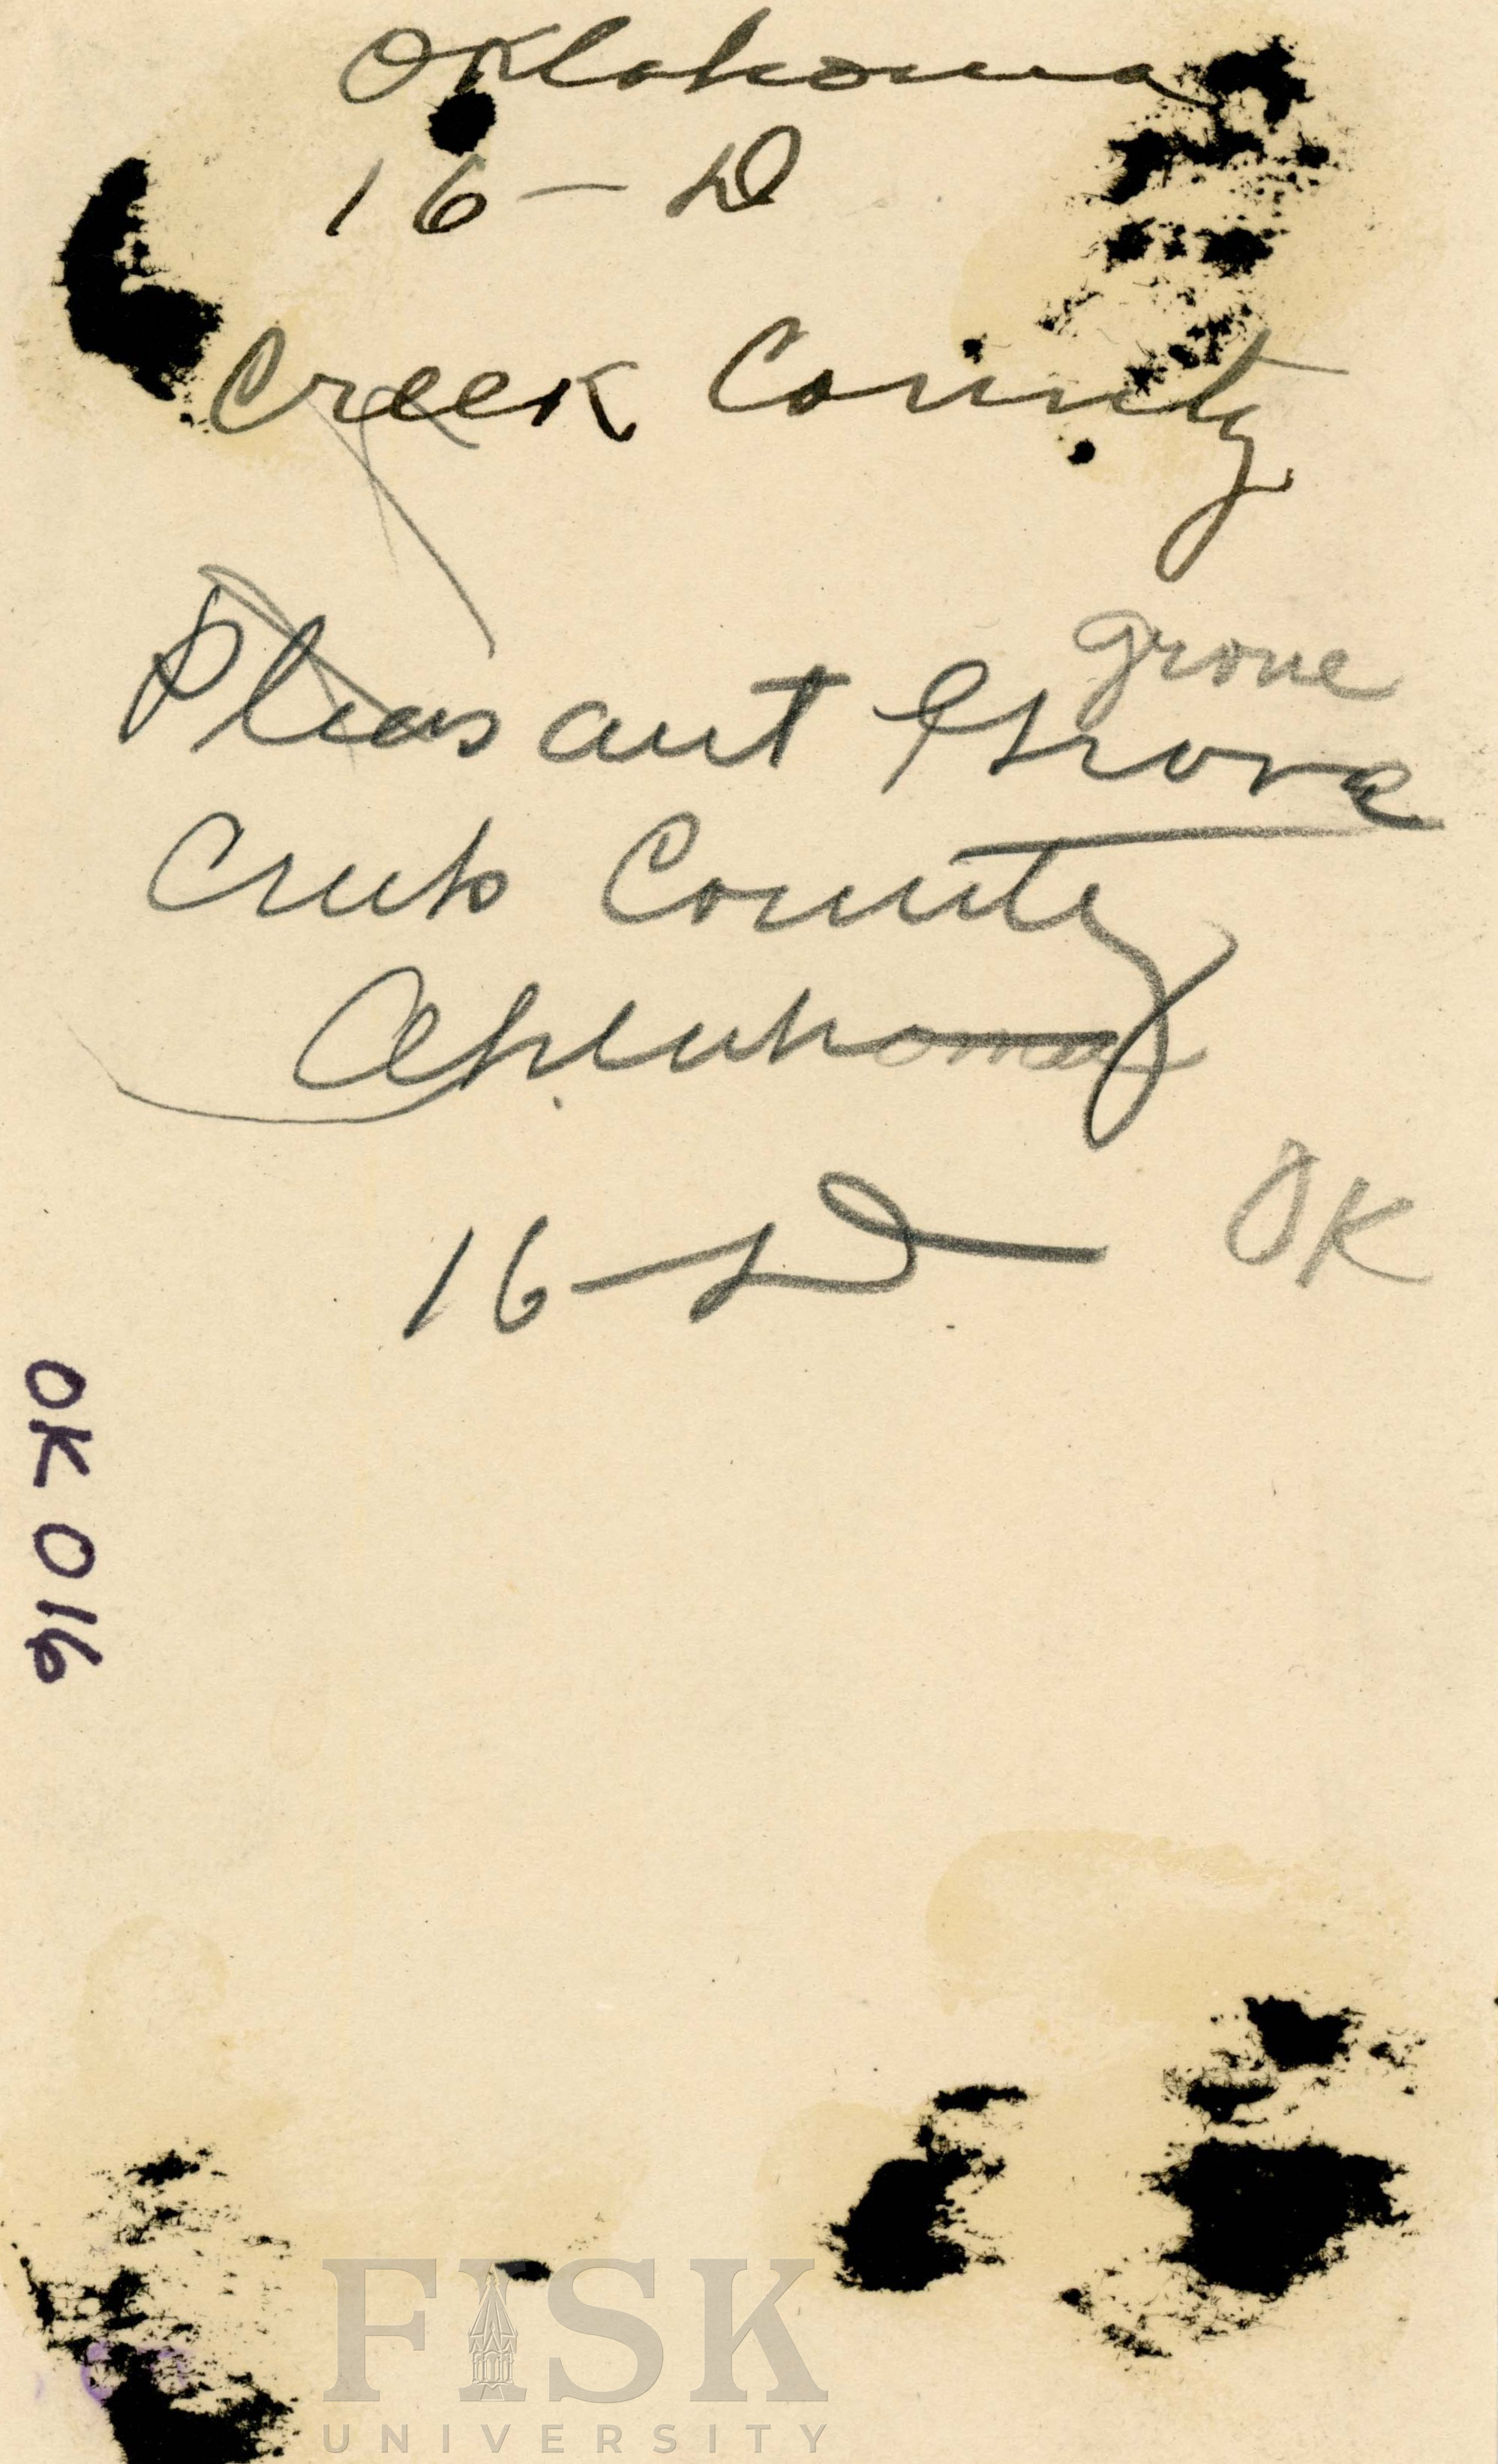 Oklahoma
16 - D
Creek County
grove
Pleasant Grove
County
16 - D
OK
OK 016
FISK
UNIVERSITY